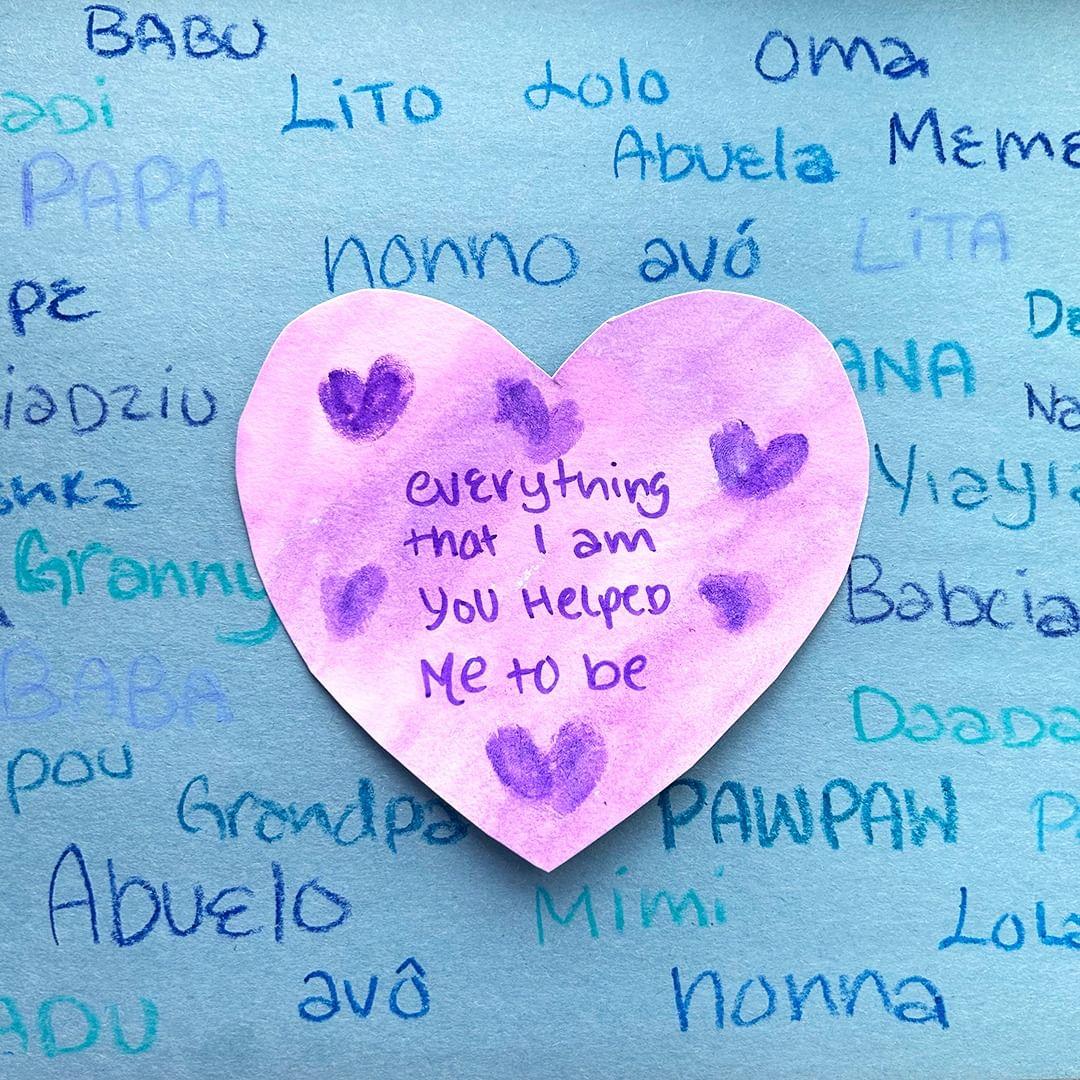 BABU
Oma
LiTO
Lolo
aDi
Abuela
MEME
PAPA
nonno
avó
LiTA
PE
De
ANA
iaDziu
Na
YiaYia
shka
everything
that I am
you Helped
Me to be
Granny
Babcia
BABA
Daada
pou
Grandpa
PAWPAW
P
Abuelo
Mimi
Lola
avô
nonna
ADU